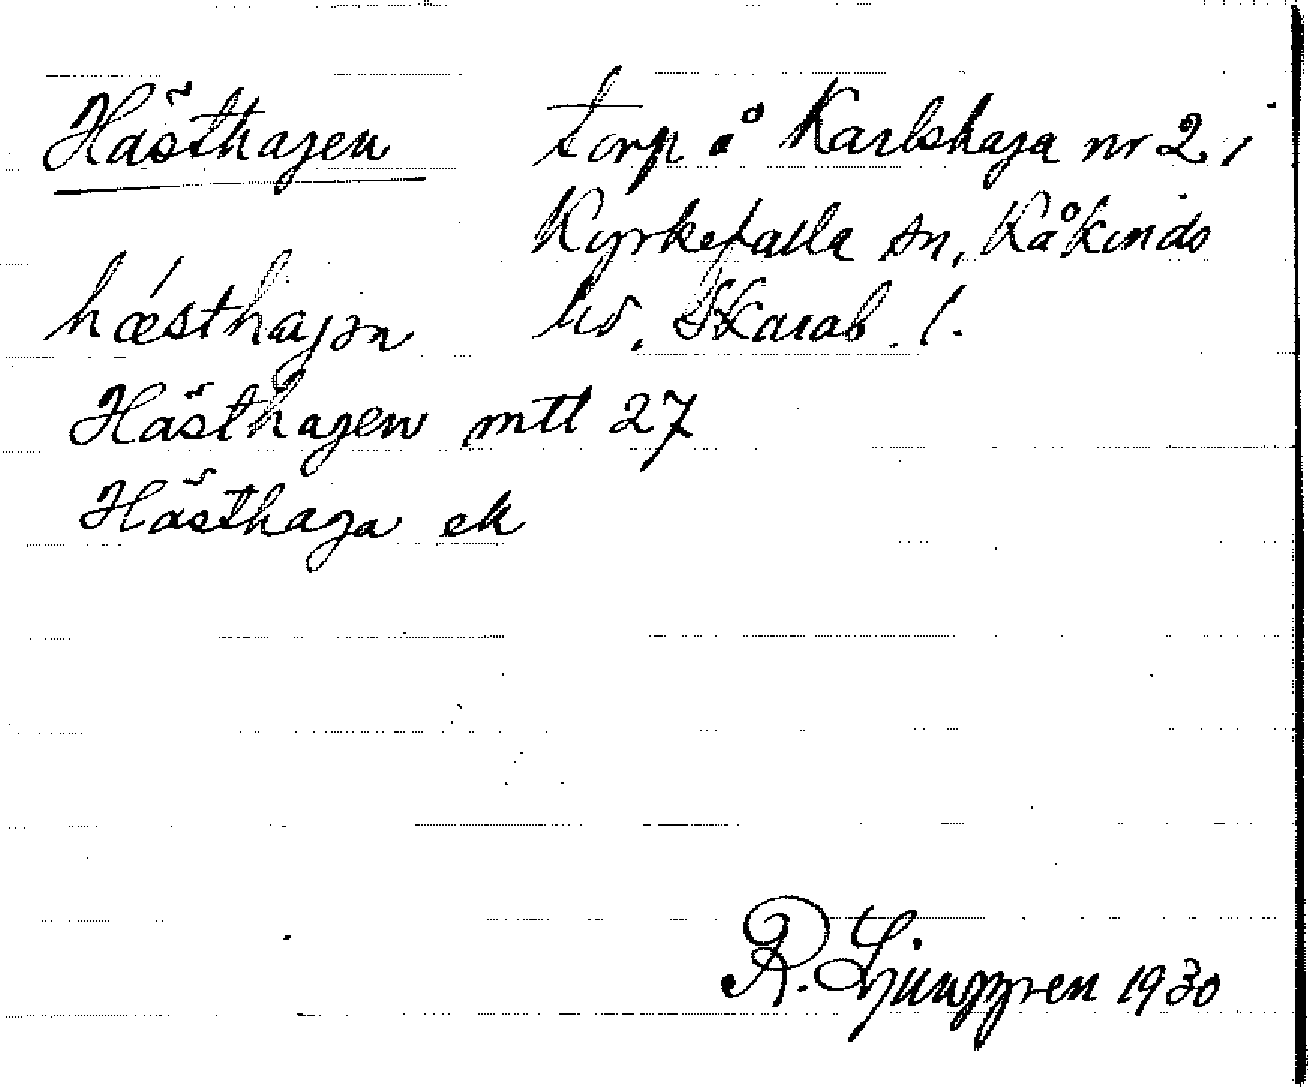 Hästhagen torp å Karlshaga nr 2 i
Kyrkefalla sn, Kåkinds
hd, Skarab. l.
hǽsthajən
Hästhagen mtl 27
Hästhaga ek
R. Ljunggren 1930